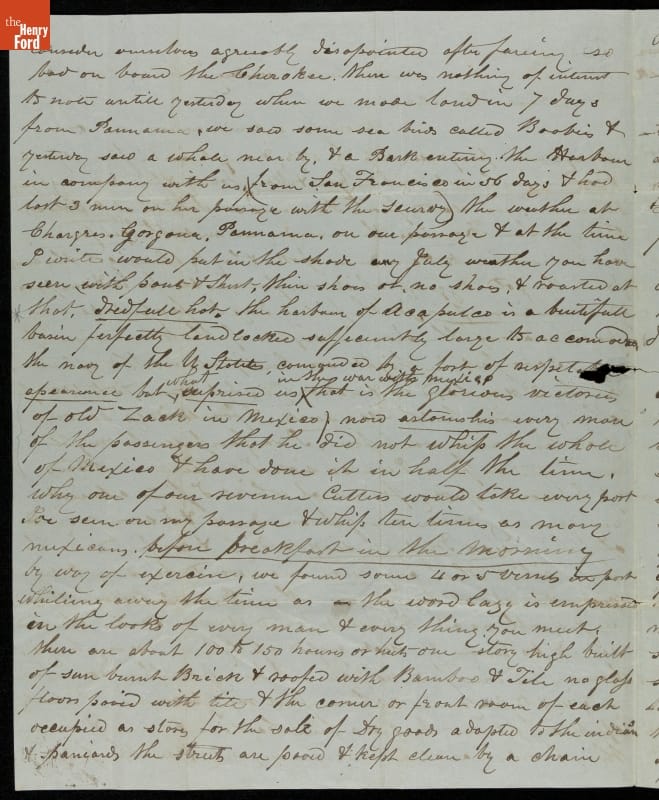 the
Henry
Ford
consider ourselves agreeably disapointed after fareing so
bad on board the Cherokee. there was nothing of interest
to note untill yesterday when we made land in 7 days
from Pannama, we saw some sea birds called Boobies &
yesterday saw a whale near by, & a Bark entering the Harbour
in company with us, (from San Francisco in 56 days & had
lost 3 men on her passage with the scurvy) the weather at
Chargres. Gorgona, Pannama. on our passage & at the time
I write would put in the shade any July weather you have
seen, with pants & shirt, thin shoes or no shoes, & roasted at
that. dredfull hot. the harbour of Acapulco is a beutifull
basin perfectly landlocked sufficiently large to accomodate
the navy of the U States, comanded by a fort of
apearence but what suprised us in the war with mexico that is the glorious victories
of old Zack in Mexico) now astonishes every man
of the passengers that he did not whip the whole
of Mexico & have done it in half the time.
Why one of our revenue Cutters would take every port
I've seen on my passage & whip ten times as many
mexicans. before breakfast in the morning
by way of exercise, we found some 4 or 5 vessels in port
whiling away the time as the word Lazy is empressed
in the looks of every man & every thing you meet,
there are about 100 to 150 houses or huts one story high built
of sun burnt Brick & roofed with Bamboo & Tile no glass
floors paved with tile & the corner or front room of each
occupied as stores for the sale of Dry goods adapted to the indian
& spaniards the streets are paved & kept clean by a chain